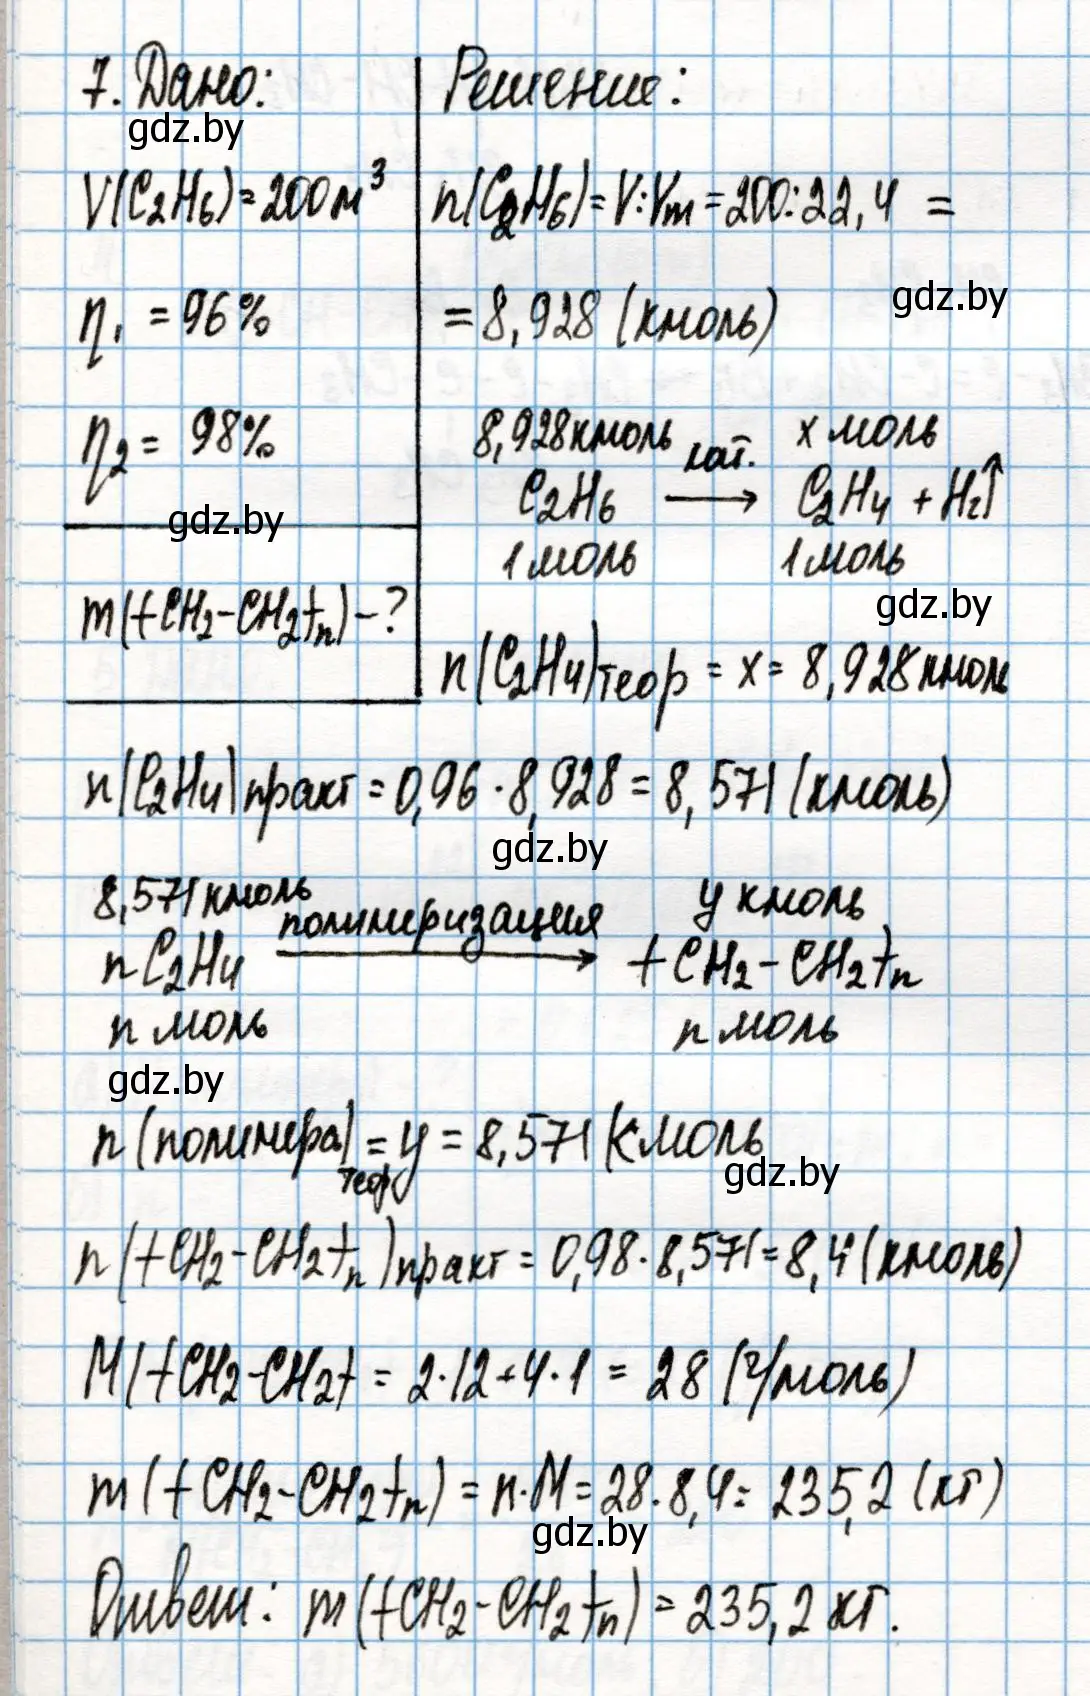 7. Дано:
gdz.by
V(C₂H₆)=200м³
η₁ = 96%
η₂ = 98%
gdz.by
m(+CH₂-CH₂+ₙ)-?
Решение:
n(C₂H₆)=V:Vm=200:22,4 =
gdz.by
=8,928 (кмоль)
8,928кмоль кат. x моль
C₂H₆ → C₂H₄ + H₂↑
1 моль 1 моль
gdz.by
n(C₂H₄)теор = x = 8,928кмоль
n(C₂H₄)практ = 0,96 · 8,928 = 8,571 (кмоль)
gdz.by
8,571кмоль полимеризация y кмоль
nC₂H₄ → +CH₂-CH₂+ₙ
n моль n моль
gdz.by
n(полимера)теор = y = 8,571 (кмоль
gdz.by
n(+CH₂-CH₂+ₙ)практ = 0,98·8,571=8,4(кмоль)
M(+CH₂-CH₂+ = 2·12+4·1 = 28 (г/моль)
m(+CH₂-CH₂+ₙ) = n·M = 28·8,4 = 235,2 (кг)
gdz.by
Ответ: m(+CH₂-CH₂+ₙ) = 235,2 кг.